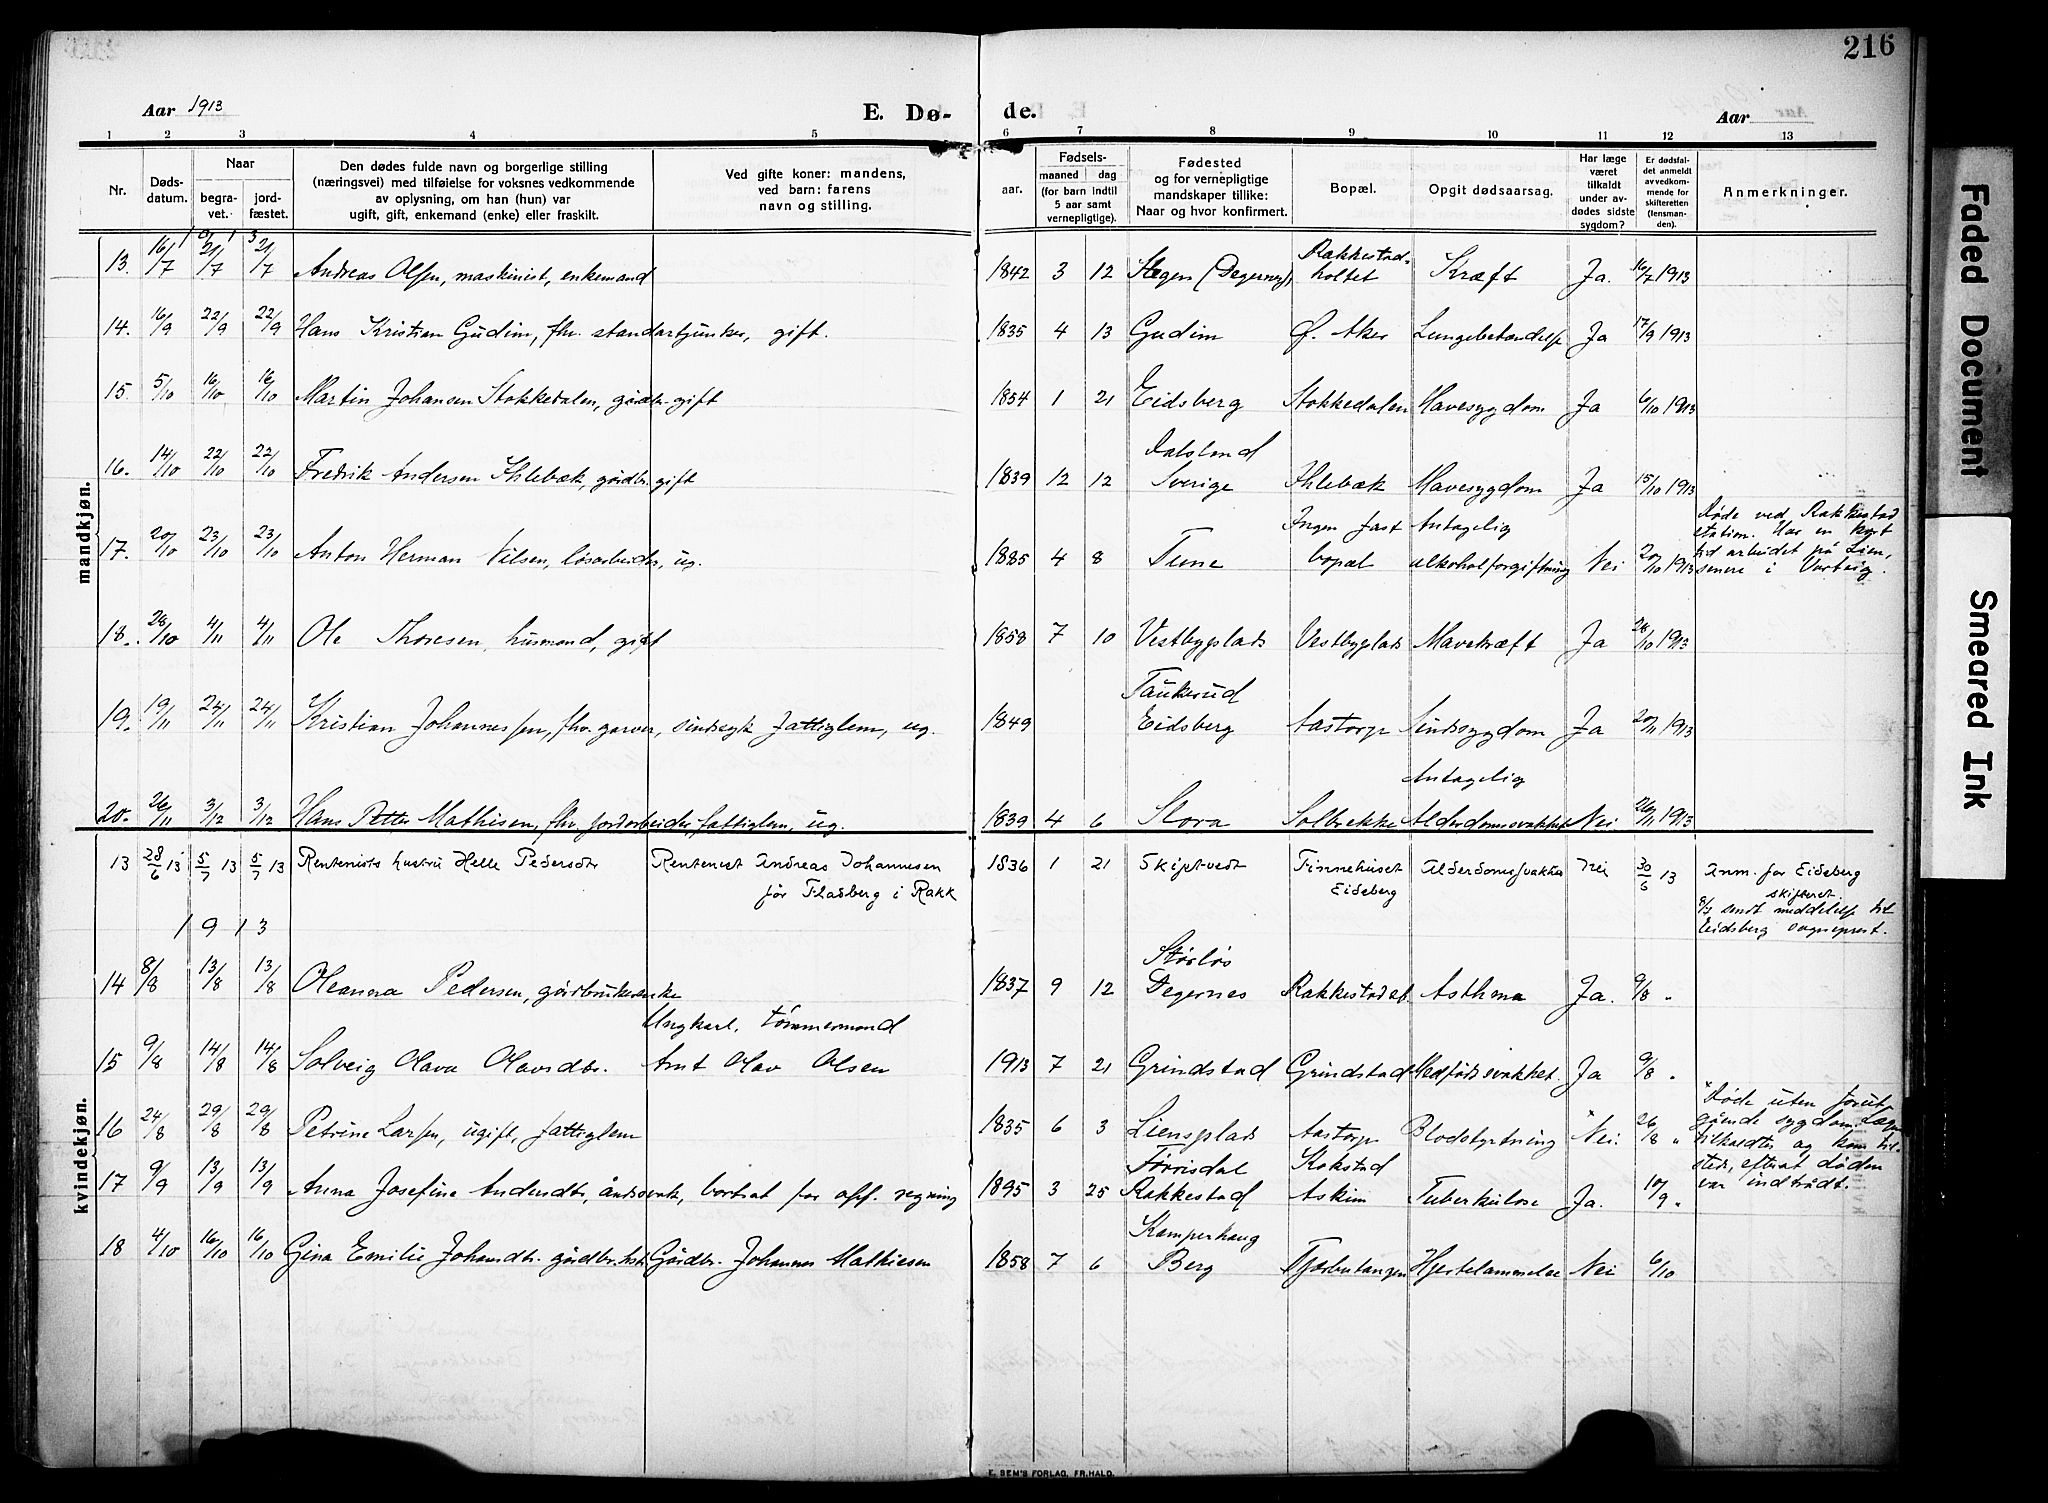 216
Aar 1913
E. Dø-
de.
Aar
1 2 3 4 5 6 7 8 9 10 11 12 13
Nr.
Døds-
datum.
Naar
begra-
vet.
jord-
fæstet.
Den dødes fulde navn og borgerlige stilling
(næringsvei) med tilføielse for voksnes vedkommende
av oplysning, om han (hun) var
ugift, gift, enkemand (enke) eller fraskilt.
Ved gifte koner: mandens,
ved barn: farens
navn og stilling.
Fødsels-
aar.
maaned
dag
(for barn indtil
5 aar samt
vernepligtige).
Fødested
og for vernepligtige
mandskaper tillike:
Naar og hvor konfirmert.
Bopæl.
Opgit dødsaarsag.
Har læge
været
tilkaldt
under av-
dødes sidste
sygdom?
Er dødsfal-
det anmeldt
av vedkom-
mende for
skifteretten
(lensman-
den).
Anmerkninger.
mandkjøn.
13. 16/7 21/7 21/7 Andreas Olsen, maskinist, enkemand 1842 3 12 Stegen (Degernes), Rakkestad-
holtet Kræft Ja. 16/7 1913
14. 16/9 22/9 22/9 Hans Kristian Gudim, fhv. standartjunker, gift. 1835 4 13 Gudim Ø. Aker Lungebetændelse Ja 17/9 1913
15. 5/10 16/10 16/10 Martin Johansen Stokkedalen, gårdbr. gift 1854 1 21 Eidsberg Stokkedalen Mavesygdom Ja 6/10 1913
16. 14/10 22/10 22/10 Fredrik Andersen Ihlebæk, gårdbr. gift 1839 12 12 Dalsland
Sverige Ihlebæk Mavesygdom Ja 15/10 1913
17. 20/10 23/10 23/10 Anton Herman Nilsen, løsarbeider, ug. 1885 4 8 Tune Ingen fast
bopæl Antagelig
alkoholforgiftning Nei 20/10 1913 Døde ved Rakkestad
station. Har en kort
tid arbeidet på Lien,
senere i Varteig.
18. 28/10 4/11 4/11 Ole Thoresen, husmand, gift 1858 7 10 Vestbyplads Vestbyplads Mavekræft Ja 28/10 1913
19. 19/11 24/11 24/11 Kristian Johannessen, fhv. garver, sindssyk fattiglem, ug. 1849 Taukerud
Eidsberg Aastorp Sindssygdom Ja 20/11 1913
20. 26/11 3/12 3/12 Hans Petter Mathisen, fhv. jordarbeider fattiglem, ug. 1839 4 6 Slora Solbrekke Antagelig
Alderdomssvakhet Nei 26/11 1913
kvindekjøn.
13 28/6 13 5/7 13 5/7 13 Rentenists hustru Helle Pedersdtr Rentenist Andreas Johannesen
før Fladberg i Rakk 1836 1 21 Skiptvedt Finnehuset
Eidsberg Alderdomssvakhet Nei 30/6 13 Anm. for Eidsberg
skifteret.
8/7 sendt meddelelse til
Eidsberg sogneprest.
1913
14 8/8 13/8 13/8 Oleanna Pedersen, gårdbrukerenke 1837 9 12 Størløs
Degernes Rakkestad st. Asthma Ja. 9/8 "
15 9/8 14/8 14/8 Solveig Olava Olavsdtr. Ungkarl, tømmermand
Arnt Olav Olsen 1913 7 21 Grindstad Grindstad Medfødt svakhet. Ja 9/8 "
16 24/8 29/8 29/8 Petrine Larsen, ugift, fattiglem 1835 6 3 Liensplads Aastorp Blodstyrtning "Nei. 26/8 " "Døde uten forut-
gående sygdom. Læge
tilkaldtes og kom til-
stede, efterat døden
var indtrådt.
17 9/9 13/9 13/9 Anna Josefine Andersdtr, åndssvak, bortsat for off. regning 1895 3 25 Tørrisdal
Rakkestad Kokstad
Askim Tuberkulose Ja. 10/9 "
18 4/10 16/10 16/10 Gina Emilie Johansdtr. gårdbr. hstr. Gårdbr. Johannes Mathiesen 1858 7 6 Kamperhaug
Berg Tjærbutangen Hjertelammelse Nei 6/10
E. SEM'S FORLAG, FR.HALD.
Faded Document
Smeared Ink